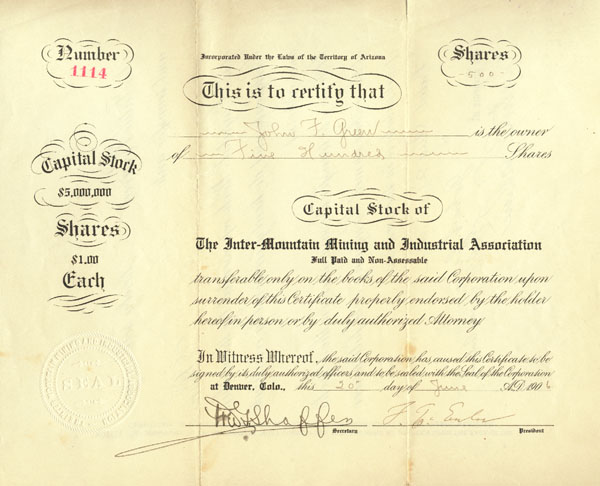 Number
1114
Incorporated Under the Laws of the Territory of Arizona
Shares
500
This is to certify that
John F. Green is the owner
of Five Hundred Shares
Capital Stock
$5,000,000
Shares
$1.00
Each
Capital Stock of
The Inter-Mountain Mining and Industrial Association
Full Paid and Non-Assessable
transferable only on the books of the said Corporation upon
surrender of this Certificate properly endorsed by the holder
hereof in person or by duly authorized Attorney
In Witness Whereof, the said Corporation has caused this Certificate to be
signed by its duly authorized officers and to be sealed with the Seal of the Corporation
at Denver, Colo., this 20 day of June A.D. 1906
Secretary
President
SEAL